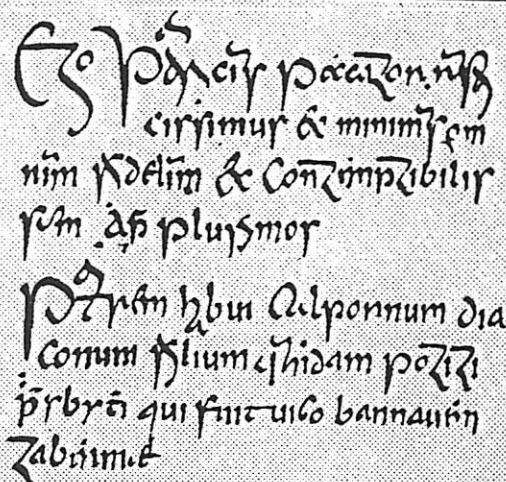 Ego Patricius peccator rusti
cissimus & minimus om
nium fidelium & contemptibilis
sim apud plurimos
Patrem habui Calpornum dia
conum filium quendam potiti
prsbyt̄i qui fuit uico bannauem
taberniae